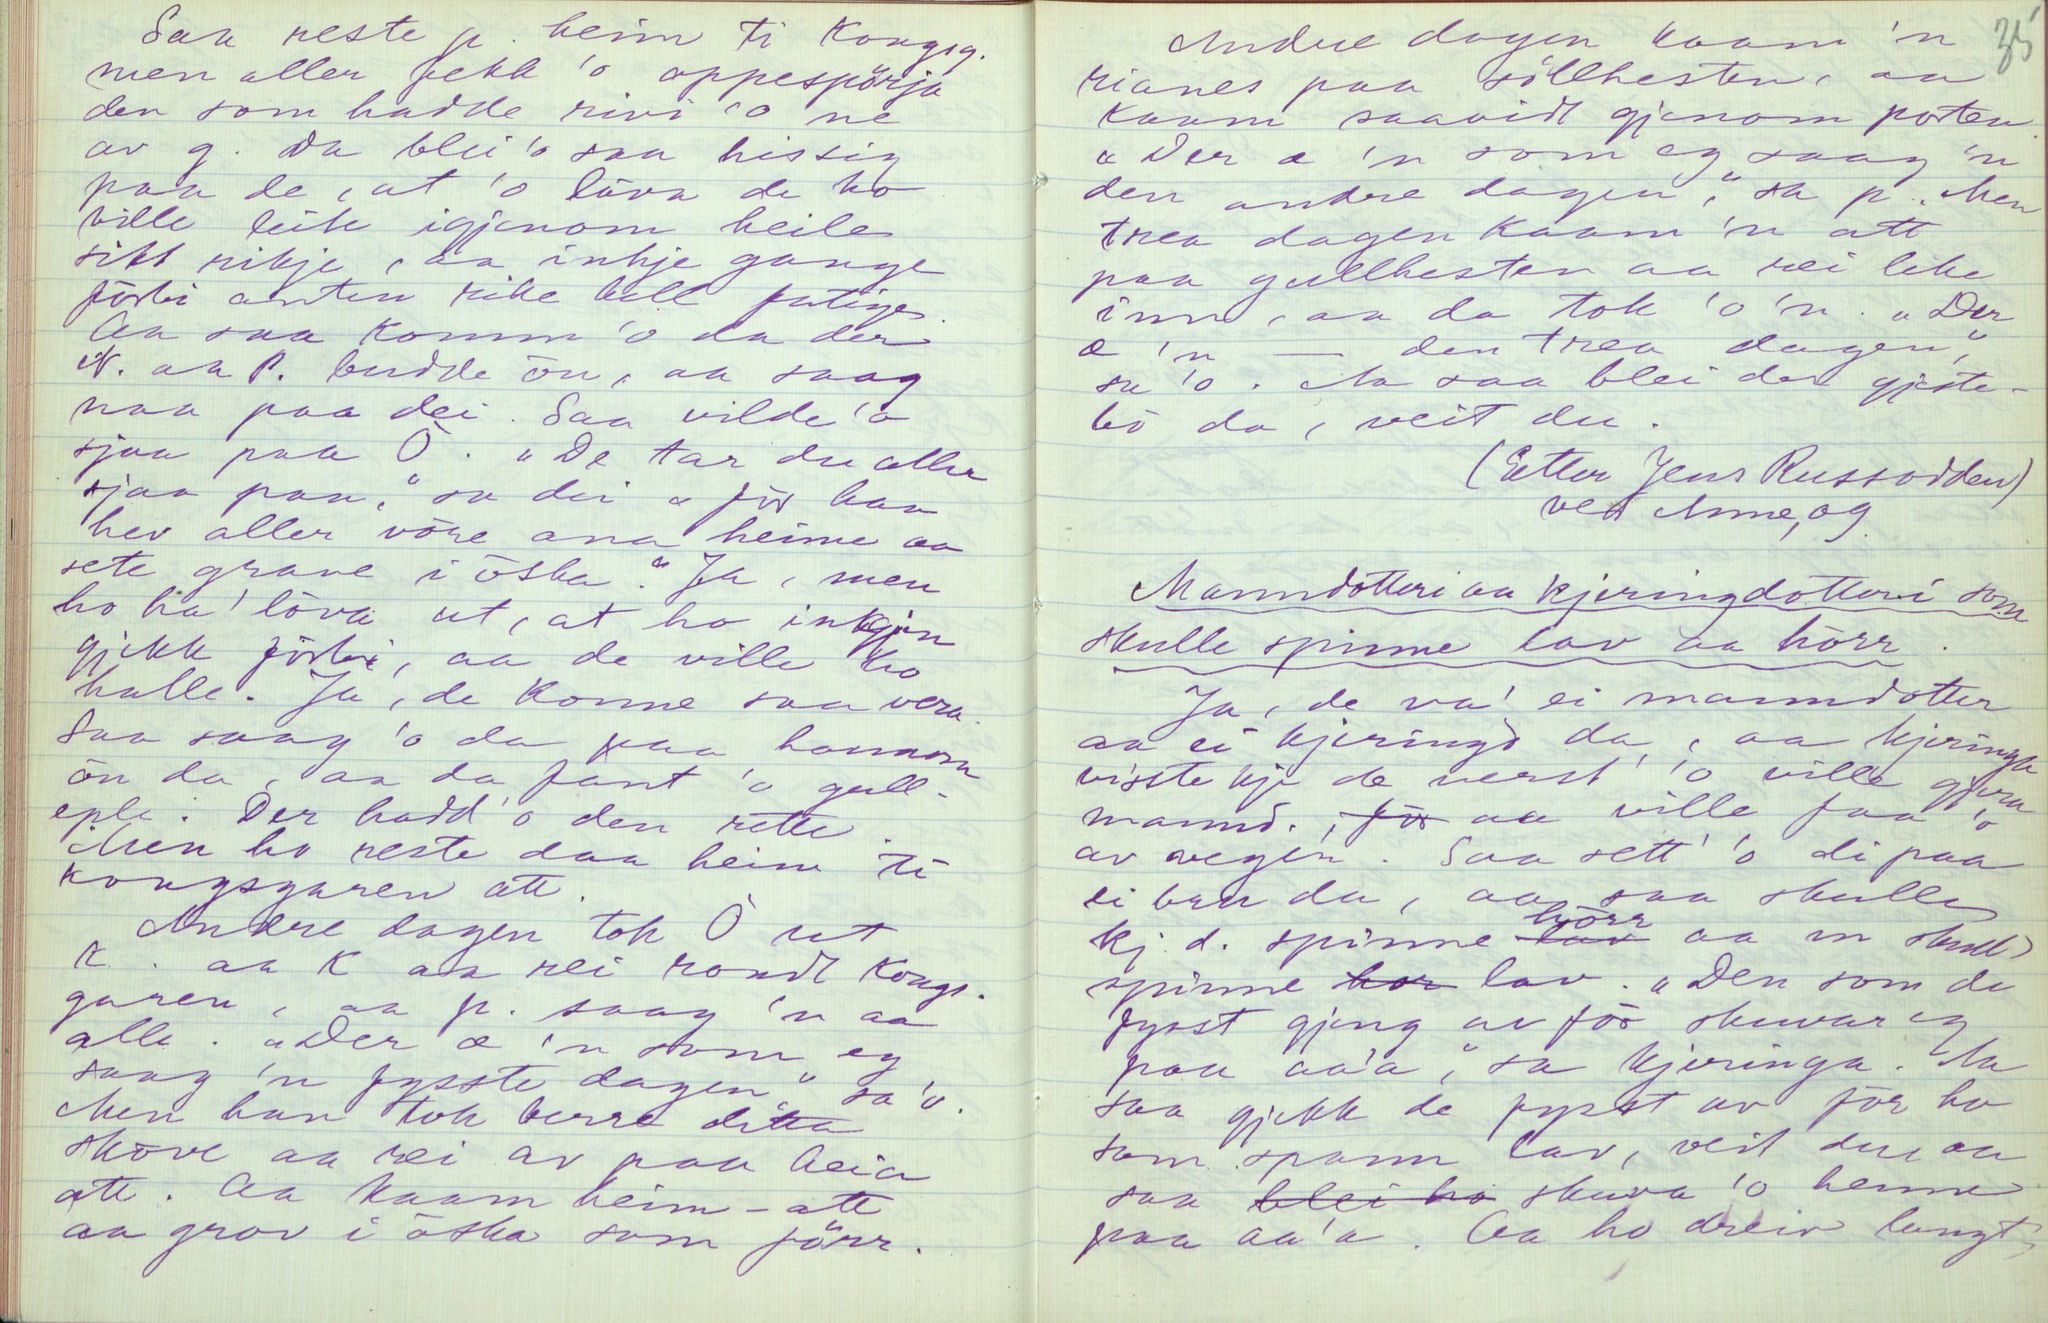 Saa reste p. heim ti Kongsg.
men aller fekk 'o oppespörja
den som hadde rivi 'o ne
av g. Da blei 'o saa hissig
paa de, at 'o lova de ho
ville leite igjenom heile
sitt rikje, aa inkje gange
förbi anten rike hell fatige.
Aa saa komm 'o da der
N. aa P. budde ön, aa saag
naa paa dei. Saa vilde 'o
sjaa paa Ö. "De tar du aller
sjaa paa," sa dei "för han
hev aller vöre ana heime aa
sete grave i öska." Ja, men
ho ha' löva ut, at ho inkjen
gjekk förbi, aa de ville ho
halle. Ja, de konne saa vera.
Saa saag 'o da paa hannom
ön da, aa da fant 'o gull-
eple. Der hadd 'o den rette.
Men ho reste daa heim ti
kongsgaren att.
Andre dagen tok Ö ut
K. aa K aa rei rondt Kongs-
garen, aa p. saag 'n aa
alle. "Der æ 'n som eg
saag 'n fysste dagen," sa 'o.
Men han tok berre
sköve aa rei av paa heia
att. Aa kaam heim-att
aa grov i öska som förr.
35
Andre dagen kaam 'n
rianes paa söllhesten, aa
kaam saavidt gjenom porten.
"Der æ 'n som eg saag 'n
den andre dagen," sa p. Men
trea dagen kaam 'n att
paa gullhesten aa rei like
inn, aa da tok 'o 'n. "Der
æ 'n — den trea dagen,"
sa 'o. Aa saa blei der gjeste-
bö da, veit du.
(Etter Jens Russodden)
ved Anne, og
Manndotteri aa kjeringdotteri som
skulle spinne lav aa hörr.
Ja, de va' ei manndotter
aa ei kjeringd da, aa kjeringa
visste kje de verst' 'o ville gjera
mannd., för aa ville faa 'o
av vegen. Saa sett' 'o di paa
ei bru da, aa saa skulle
kj. d. spinne lav hörr aa m skulle
spinne hor lav. "Den som de
fysst gjeng av för skuvar eg
paa aa'a," sa kjeringa. Aa
saa gjekk de fysst av för ho
som spann lav, veit du, aa
saa blei ho skuva 'o henne
paa aa'a. Aa ho dreiv langt,